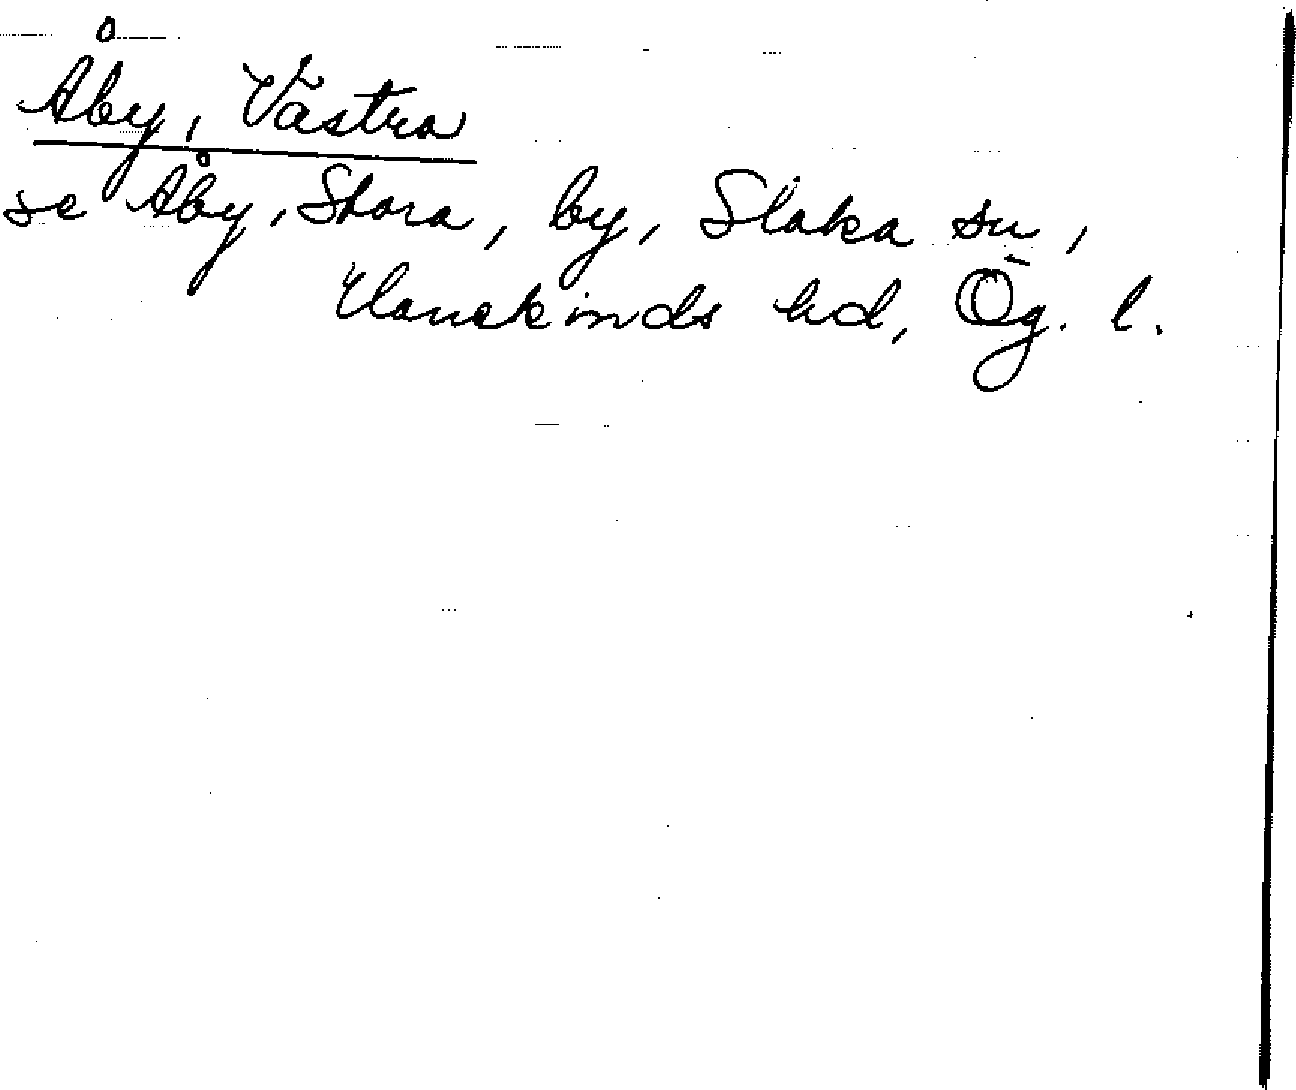 Åby, Västra
se Åby, Stora, by, Slaka sn,
Hanekinds hd, Ög. l.